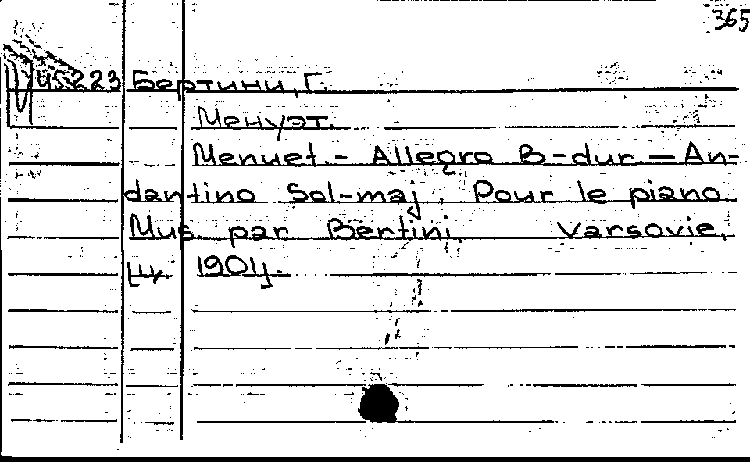 365
45223 Бертини, Г.
Менуэт.
Menuet. - Allegro B-dur — An-
dantino Sol-maj. Pour le piano.
Mus. par Bertini. Varsovie,
ц. 1904.